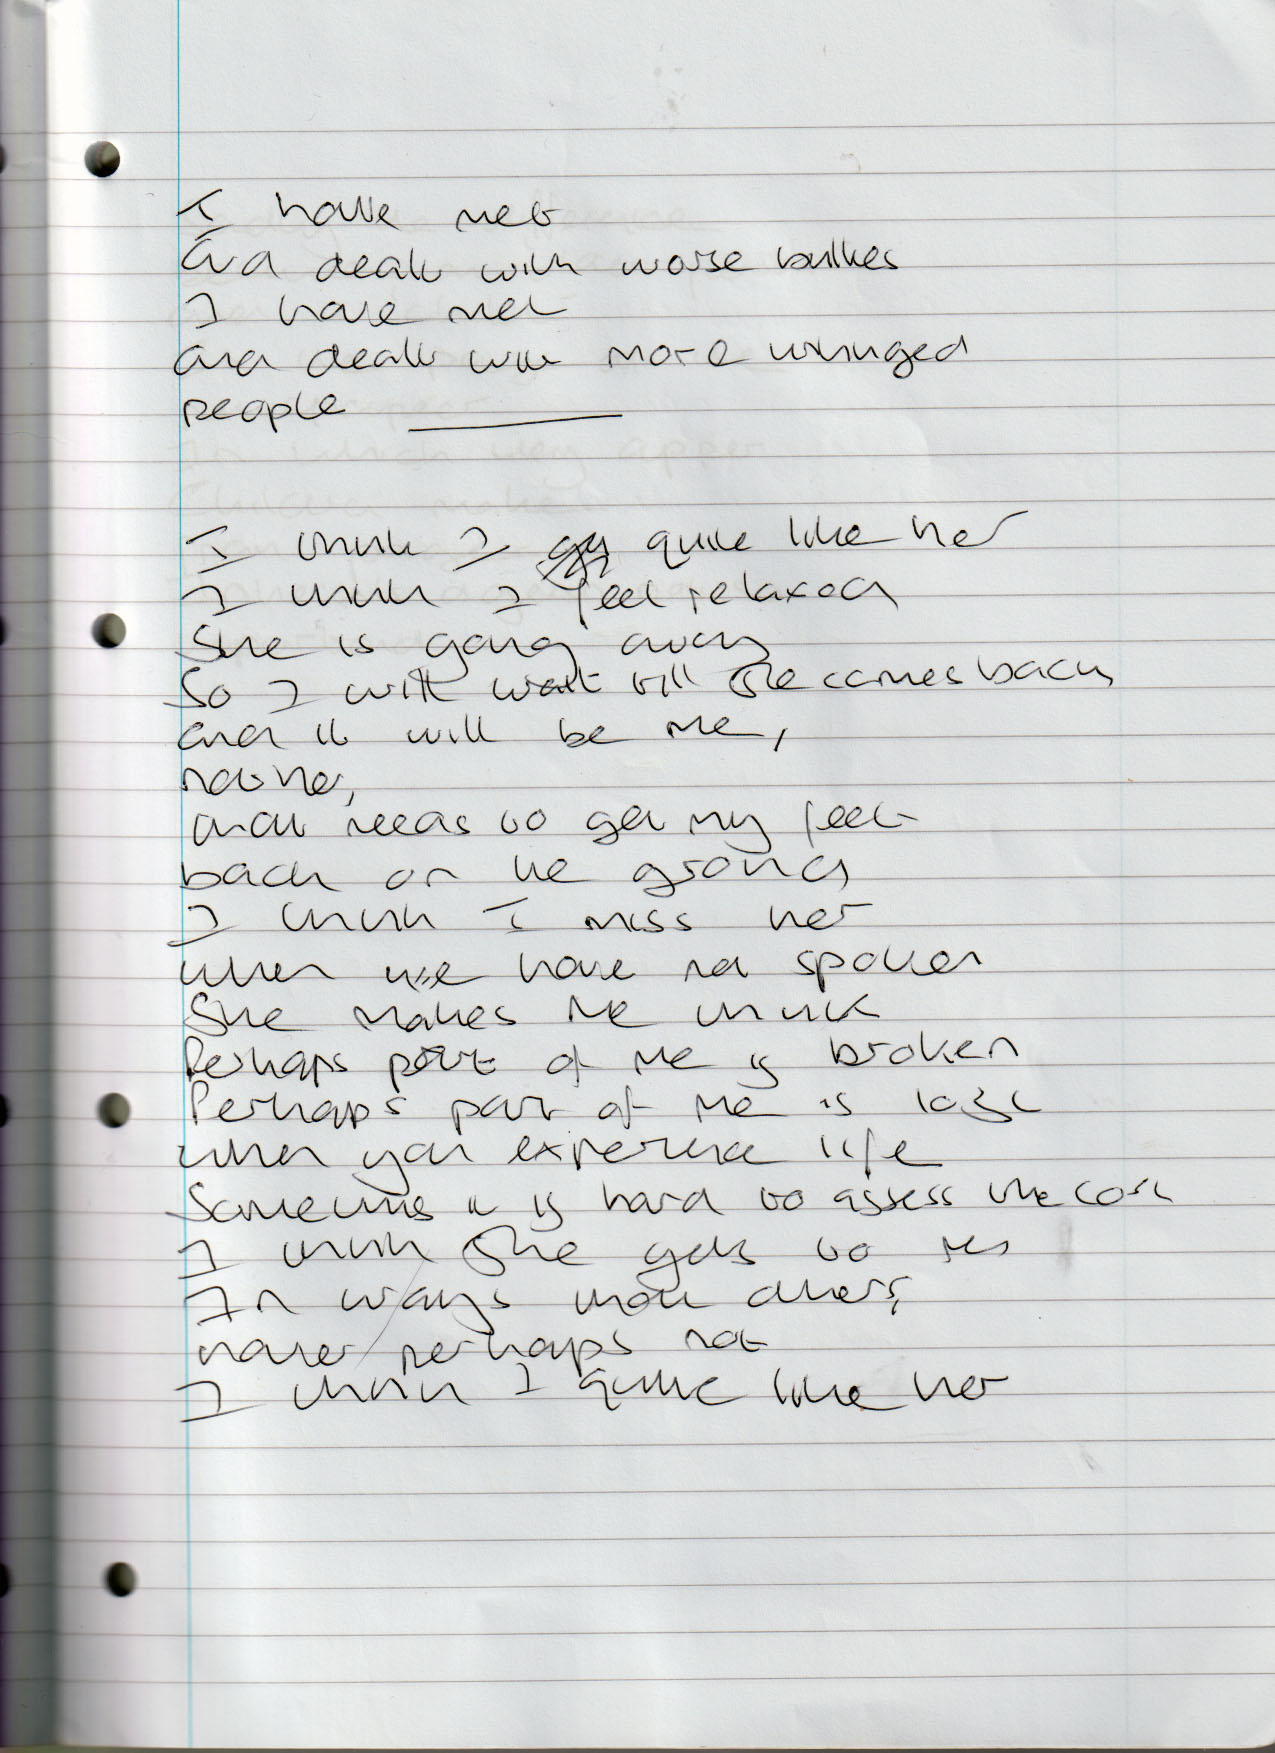 I have met
And dealt with worse bullies
I have met
and dealt with more
people
I think I quite like her
I think I feel relaxed
She is going away
So I will wait till she comes back
and it will be me,
not her,
that needs to get my feet
back on the ground
I think I miss her
when we have not spoken
She makes me think
Perhaps part of me is broken
Perhaps part of me is lost
when you experience life
Sometimes it is hard to assess the cost
I think she gets to me
In ways that others,
have perhaps not
I think I quite like her